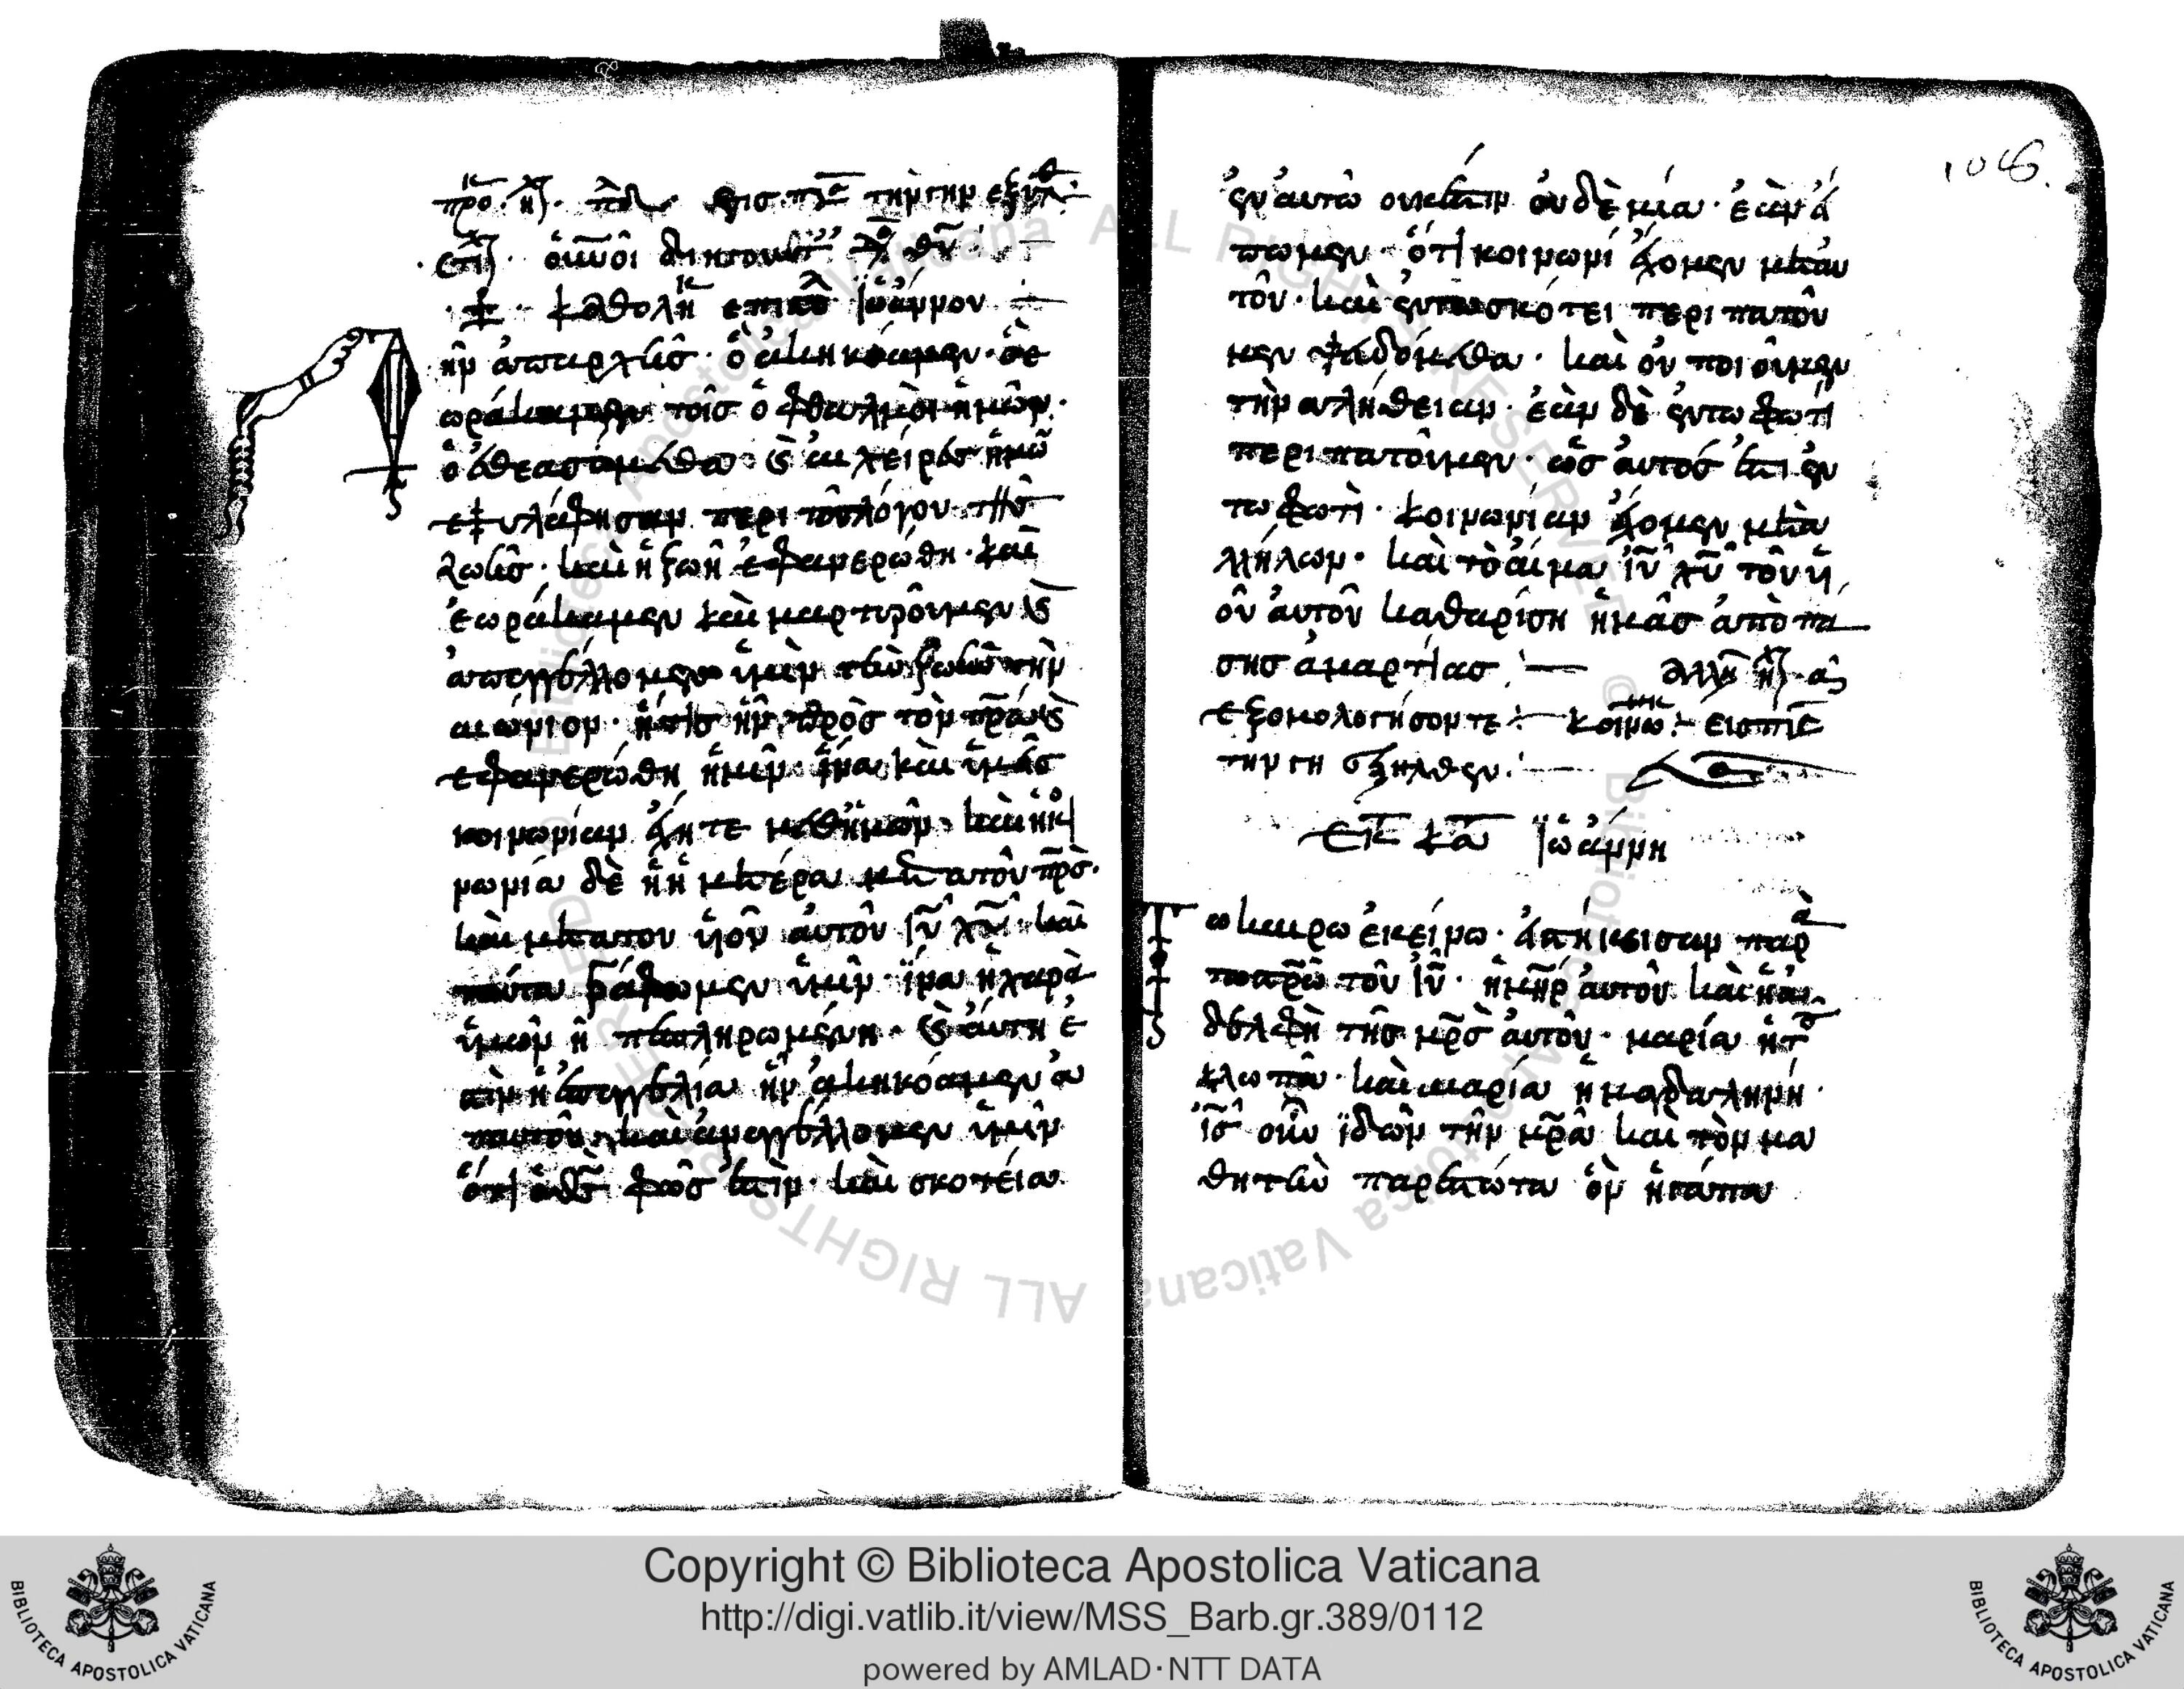 ἦν ἀπαρχῆς· ὃ ἀκηκόαμεν· ὃ ἑ
ωράκαμεν τοῖς ὀφθαλμοῖ ἡμῶν·
ὃ ἐθεασάμεθα· καὶ αἱ χείρες ἡμῶ
εψυλάφησαν περι τοῦ λόγου τῆς
ζωῆς· καὶ ἡ ζωὴ ἐφανερώθη· καὶ
ἑωράκαμεν καὶ μαρτυροῦμεν καὶ
ἀπαγγέλλομεν ὑμῖν τὴν ζωὴν τὴν
αιώνιον· ἥτις ἦν πρὸς τὸν πρα καὶ
εφανερώθη ἡμῖν· ἵνα καὶ ὑμᾶς
κοινωνίαν ἔχητε μεθ ἡμῶν· καὶ ἡ κοι
νωνία δὲ ἡ ἡμετέρα μετατοῦ πρς·
καὶ μετατου υἱοῦ αὐτοῦ ιυ χυ· καὶ
ταύτα γράφωμεν ὑμῖν· ἵνα ἡ χαρὰ
ὑμῶν ἦ πεπληρωμένη· καὶ αὕτη ἐ
στὶν ἡ ἐπαγγελία ἣν ἀκηκόαμεν α
παυτοῦ· καὶ ἀναγγέλλομεν ὑμῖν
ὅτι ὁ θς φῶς ἐστὶν· καὶ σκοτεία
106.
ἐν αυτῶ ουκέστιν οὐδὲμία· ἐὰν εἴ
πωμεν· ὅτι κοινωνί ἔχομεν μεταυ
τοῦ· καὶ ἐν τω σκότει περιπατοῦ
μεν ψευδόμεθα· καὶ οὐ ποιοῦμεν
τὴν αλήθειαν· ἐὰν δὲ ἐν τω φωτὶ
περιπατοῦμεν· ὡς αὐτός ἐστι ἐν
τω φωτὶ· κοινωνίαν ἔχομεν μετὰ
λλήλων· καὶ τὸ αἵμα ιυ χυ τοῦ υἱ
οῦ αὐτοῦ καθαρίση ἡμᾶς ἀπὸ πα
σης ἁμαρτίας
εξομολογήσοντε κοινω εισπα
την γη εξηλθεν
Εκ κατα ϊωάννη
Τω καιρω ἐκείνω· εἱστήκεισαν παρὰ
τωσρω τοῦ ιυ· ἡ μηρ αὐτοῦ καὶ ἡ ἀ
δελφὴ τῆς μρς αὐτοῦ· μαρία ἡ τοῦ
κλωπᾶ· καὶ μαρία ἡ μαγδαληνή·
ις οὖν ϊδὼν τὴν μρα καὶ τὸν μα
θητὴν παρεστώτα ὃν ἠγάπα
Copyright © Biblioteca Apostolica Vaticana
http://digi.vatlib.it/view/MSS_Barb.gr.389/0112
powered by AMLAD·NTT DATA
BIBLIOTECA APOSTOLICA VATICANA
BIBLIOTECA APOSTOLICA VATICANA